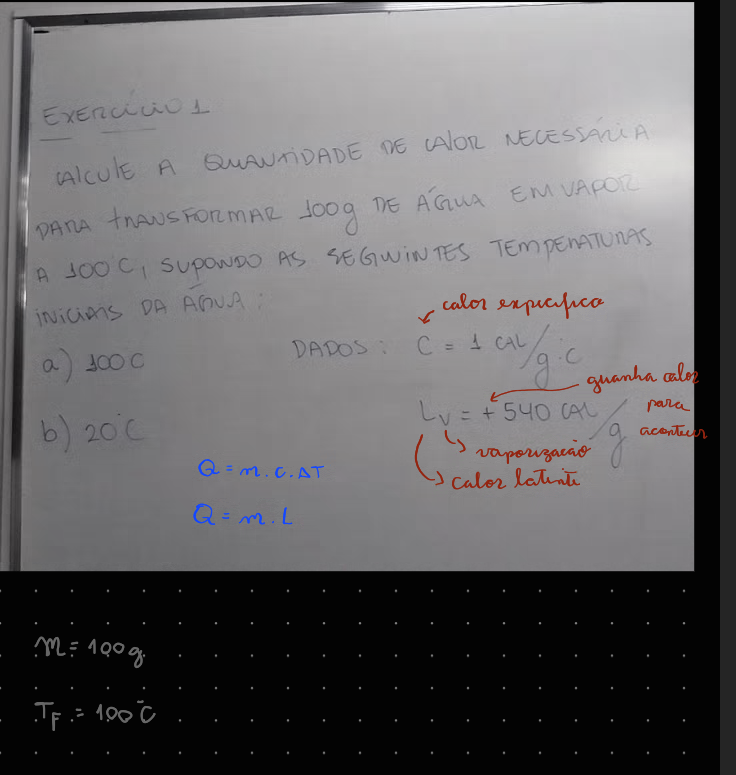 EXERCÍCIO 1
CALCULE A QUANTIDADE DE CALOR NECESSÁRIA
PARA TRANSFORMAR 100g DE ÁGUA EM VAPOR
A 100°C, SUPONDO AS SEGUINTES TEMPERATURAS
INICIAIS DA ÁGUA:
calor expecifico
a) 100°C
DADOS: C = 1 CAL/g·°C
guanha calor
para
acontecer
b) 20°C
LV = + 540 CAL/g
vaporização
calor latente
Q = m.c.ΔT
Q = m.L
m = 100g
TF = 100°C